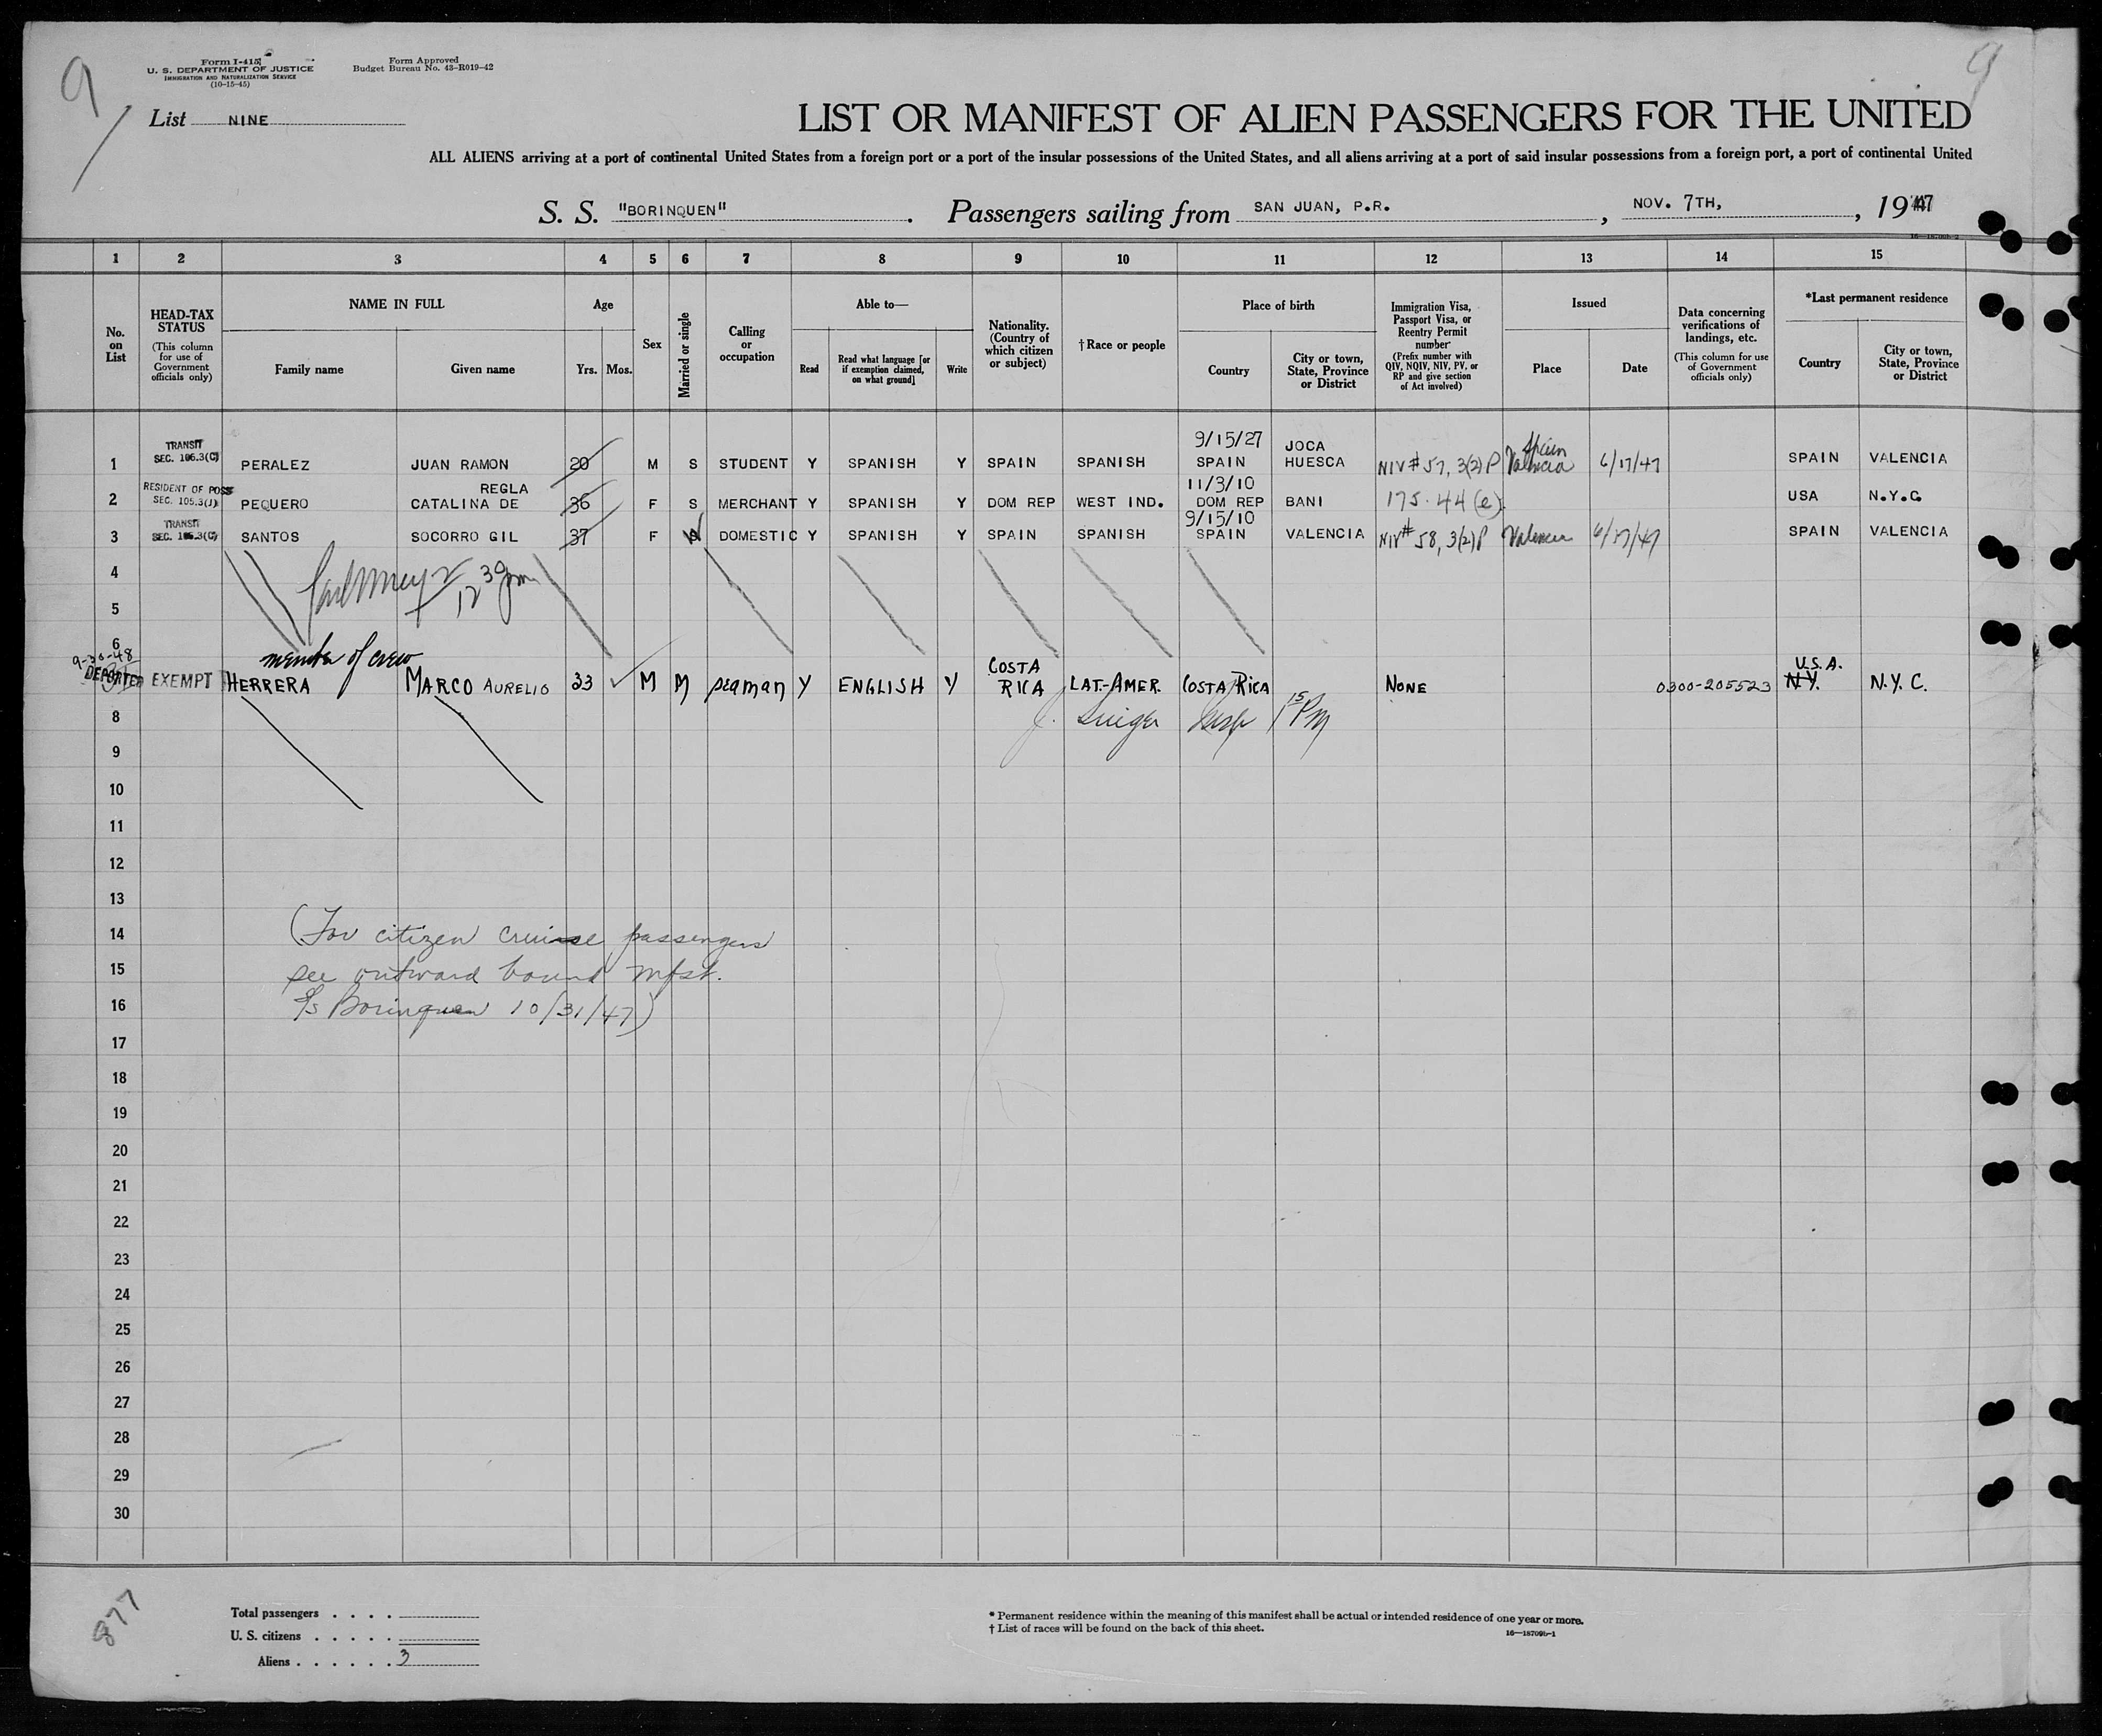 9
Form I-415
U. S. DEPARTMENT OF JUSTICE
IMMIGRATION AND NATURALIZATION SERVICE
(10-15-45)
Form Approved
Budget Bureau No. 43-R019-42
9
List NINE
LIST OR MANIFEST OF ALIEN PASSENGERS FOR THE UNITED
ALL ALIENS arriving at a port of continental United States from a foreign port or a port of the insular possessions of the United States, and all aliens arriving at a port of said insular possessions from a foreign port, a port of continental United
S. S. "BORINQUEN" . Passengers sailing from SAN JUAN, P.R. , NOV. 7TH, , 1947
1 2 3 4 5 6 7 8 9 10 11 12 13 14 15
No. on List
HEAD-TAX STATUS
(This column for use of Government officials only)
NAME IN FULL
Family name
Given name
Age
Yrs. Mos.
Sex
Married or single
Calling or occupation
Able to—
Read
Read what language [or if exemption claimed, on what ground]
Write
Nationality. (Country of which citizen or subject)
†Race or people
Place of birth
Country
City or town, State, Province or District
Immigration Visa, Passport Visa, or Reentry Permit number
(Prefix number with QIV, NQIV, NIV, PV, or RP and give section of Act involved)
Issued
Place
Date
Data concerning verifications of landings, etc.
(This column for use of Government officials only)
*Last permanent residence
Country
City or town, State, Province or District
1 TRANSIT SEC. 105.3(C) PERALEZ JUAN RAMON 20 M S STUDENT Y SPANISH Y SPAIN SPANISH 9/15/27 SPAIN JOCA HUESCA NIV#57, 3(2)P Spain Valencia 6/17/47 SPAIN VALENCIA
2 RESIDENT OF POSS SEC. 105.3(J) PEQUERO REGLA CATALINA DE 36 F S MERCHANT Y SPANISH Y DOM REP WEST IND. 11/3/10 DOM REP BANI 175.44(e) USA N.Y.C
3 TRANSIT SEC. 105.3(C) SANTOS SOCORRO GIL 37 F W DOMESTIC Y SPANISH Y SPAIN SPANISH 9/15/10 SPAIN VALENCIA NIV# 58, 3(2)P Valencia 6/17/47 SPAIN VALENCIA
4
12 30 pm
5
6
member of crew
9-30-48
DEPORTED EXEMPT HERRERA MARCO AURELIO 33 M M seaman Y ENGLISH Y COSTA RICA LAT.-AMER. COSTA RICA NONE 0300-205523 U.S.A. N.Y. N.Y.C.
8
J. Insp 1 15 PM
9
10
11
12
13
14 (For citizen cruise passengers
15 see outward bound mfst.
16 S/s Borinquen 10/31/47)
17
18
19
20
21
22
23
24
25
26
27
28
29
30
877
Total passengers . . . .
U. S. citizens . . . . .
Aliens . . . . . . 3
* Permanent residence within the meaning of this manifest shall be actual or intended residence of one year or more.
† List of races will be found on the back of this sheet.
16—18709b-1